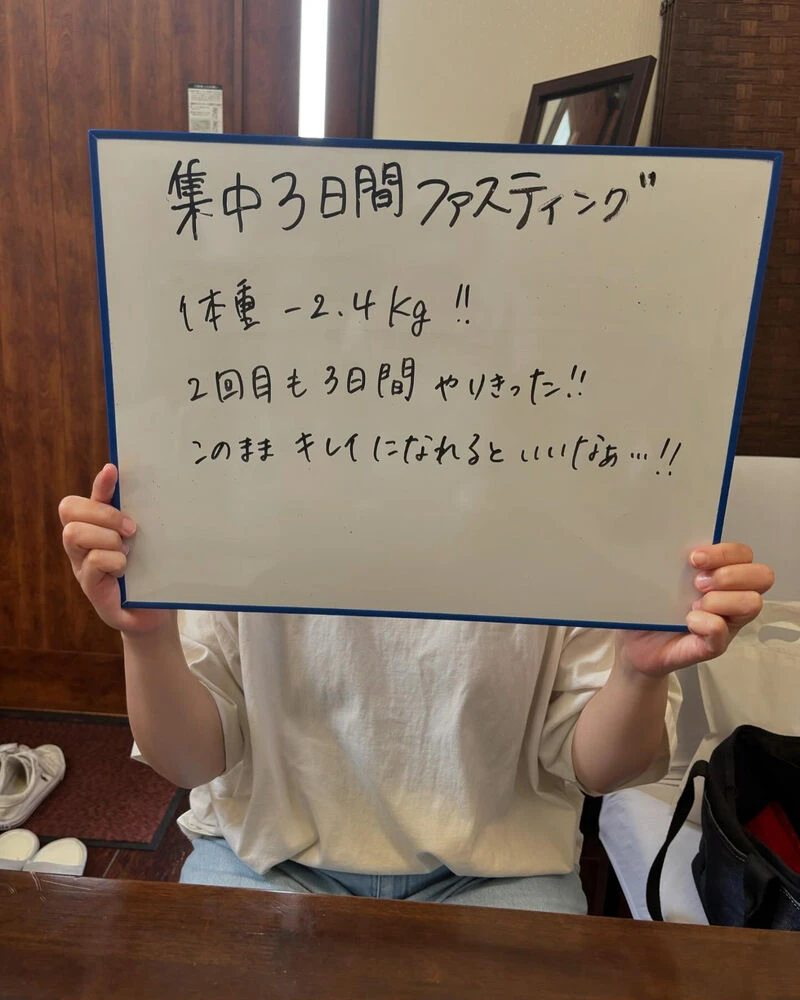 集中3日間ファスティング
体重 -2.4kg!!
2回目も3日間やりきった!!
このままキレイになれるといいなぁ…!!